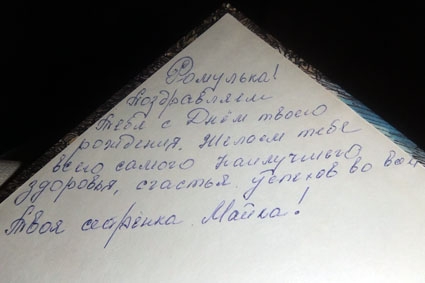 Ромулька!
Поздравляем
тебя с Днём твоего
рождения. Желаем тебе
всего самого наилучшего
здоровья, счастья успехов во всём
Твоя сестрёнка Майка!